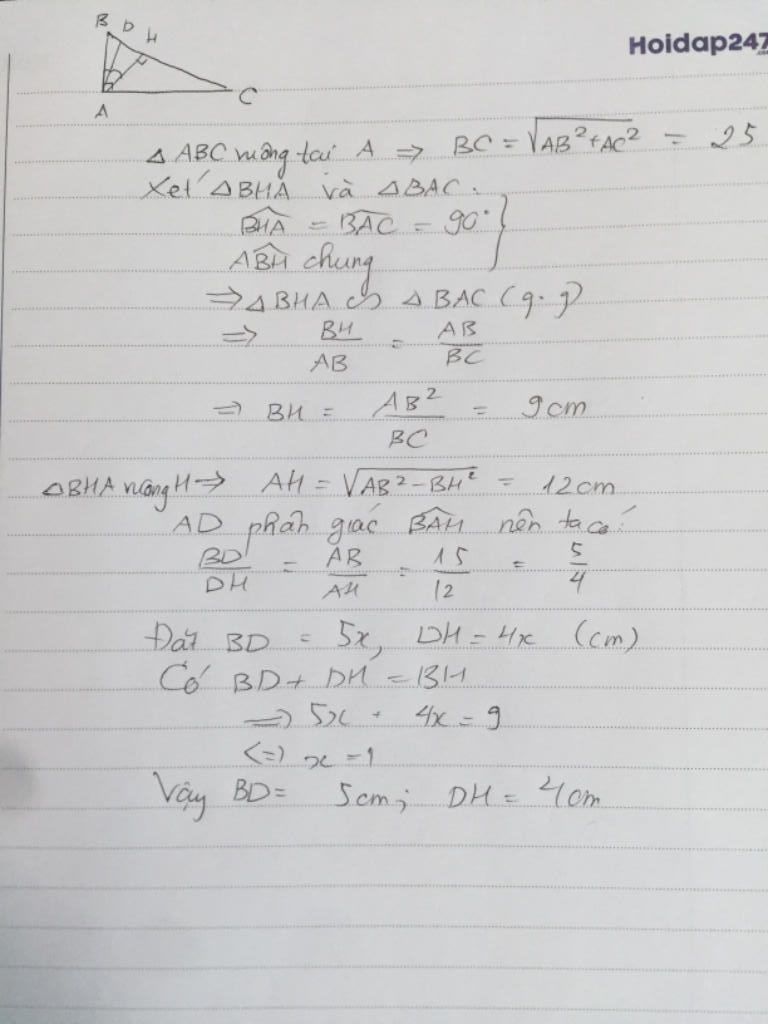 Hoidap247
.com
B D H
A C
△ ABC vuông tại A ⇒ BC = √(AB² + AC²) = 25
Xét △BHA và △BAC.
BHA^ = BAC^ = 90° }
ABH^ chung
⇒ △BHA ∽ △BAC (g.g)
⇒ BH/AB = AB/BC
⇒ BH = AB²/BC = 9cm
△BHA vuông H ⇒ AH = √(AB² - BH²) = 12cm
AD phân giác BAH^ nên ta có:
BD/DH = AB/AH = 15/12 = 5/4
Đặt BD = 5x, DH = 4x (cm)
Có BD + DH = BH
⇒ 5x + 4x = 9
<=> x = 1
Vậy BD = 5cm; DH = 4cm